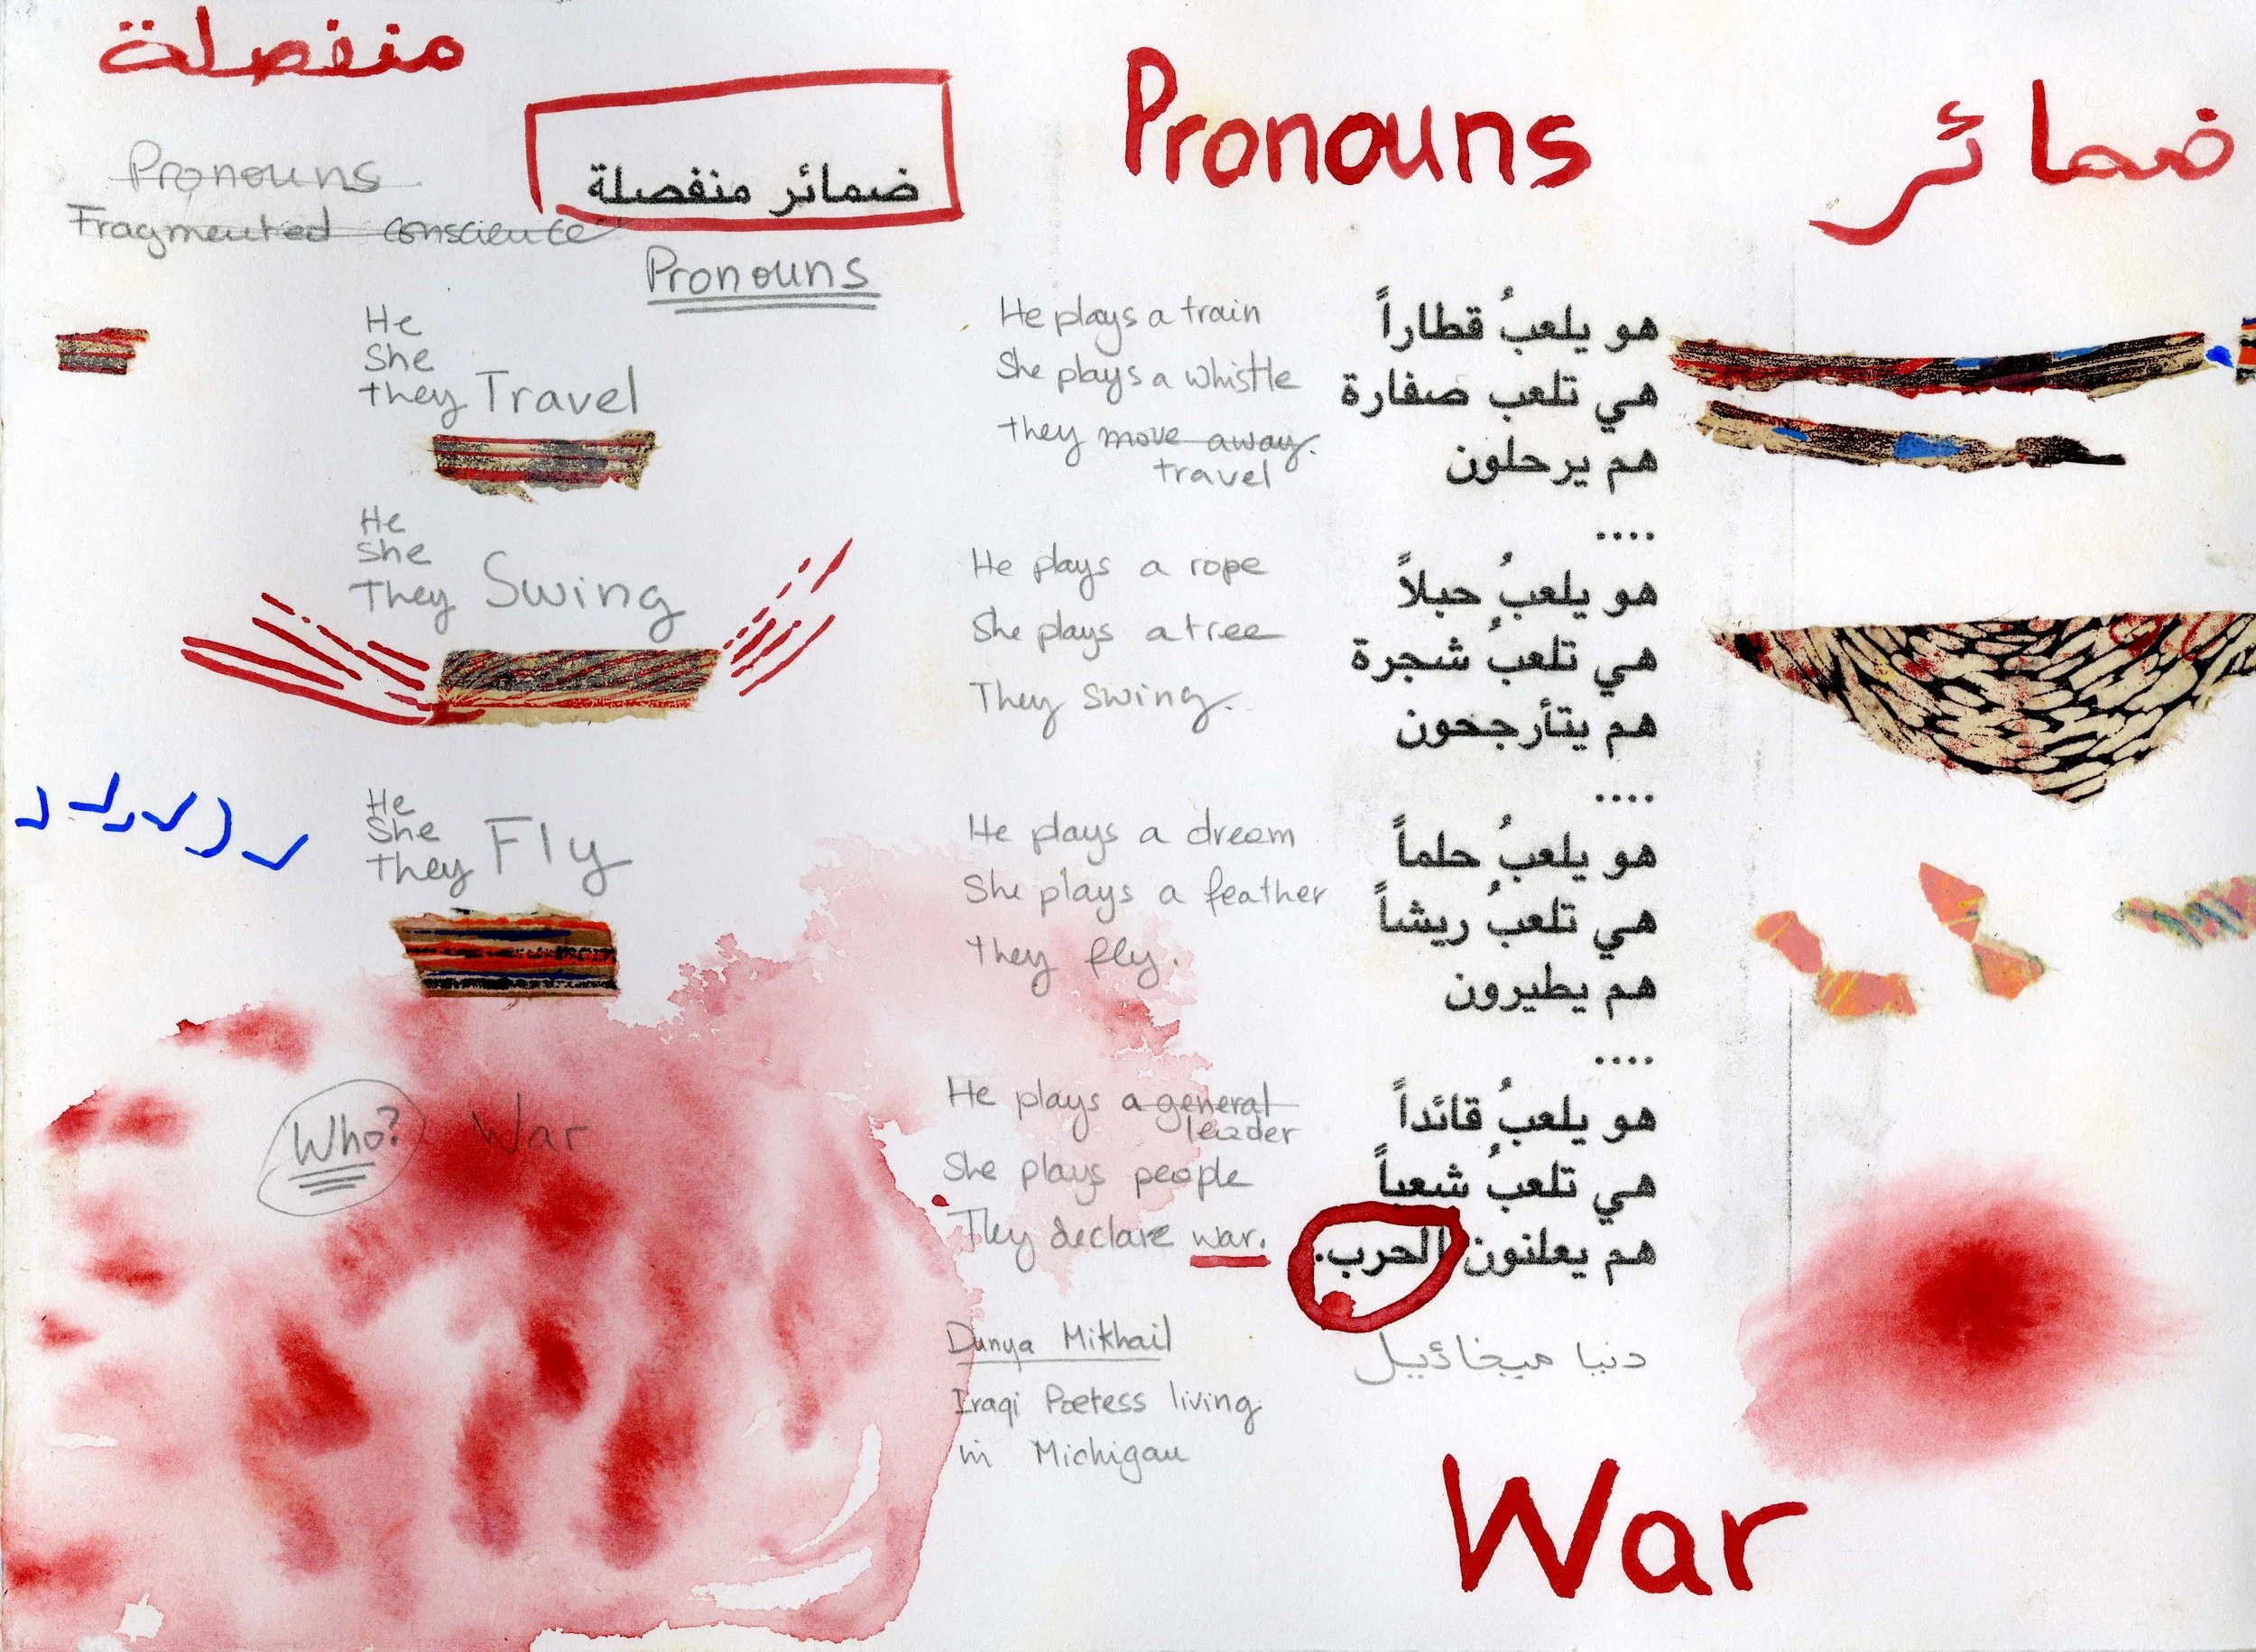 منفصلة
Pronouns
Fragmented conscience
ضمائر منفصلة
Pronouns
Pronouns
ضمائر
He
She
they Travel
He
She
They Swing
He
She
They Fly
Who? War
He plays a train
She plays a whistle
they move away.
travel
He plays a rope
She plays a tree
They swing.
He plays a dream
She plays a feather
they fly.
He plays a general
leader
She plays people
They declare war.
Dunya Mikhail
Iraqi Poetess living
in Michigan
هو يلعبُ قطاراً
هي تلعب صفارة
هم يرحلون
....
هو يلعبُ حبلاً
هي تلعبُ شجرة
هم يتأرجحون
....
هو يلعبُ حلماً
هي تلعبُ ريشاً
هم يطيرون
....
هو يلعبُ قائداً
هي تلعبُ شعباً
هم يعلنون الحرب.
دنيا ميخائيل
War